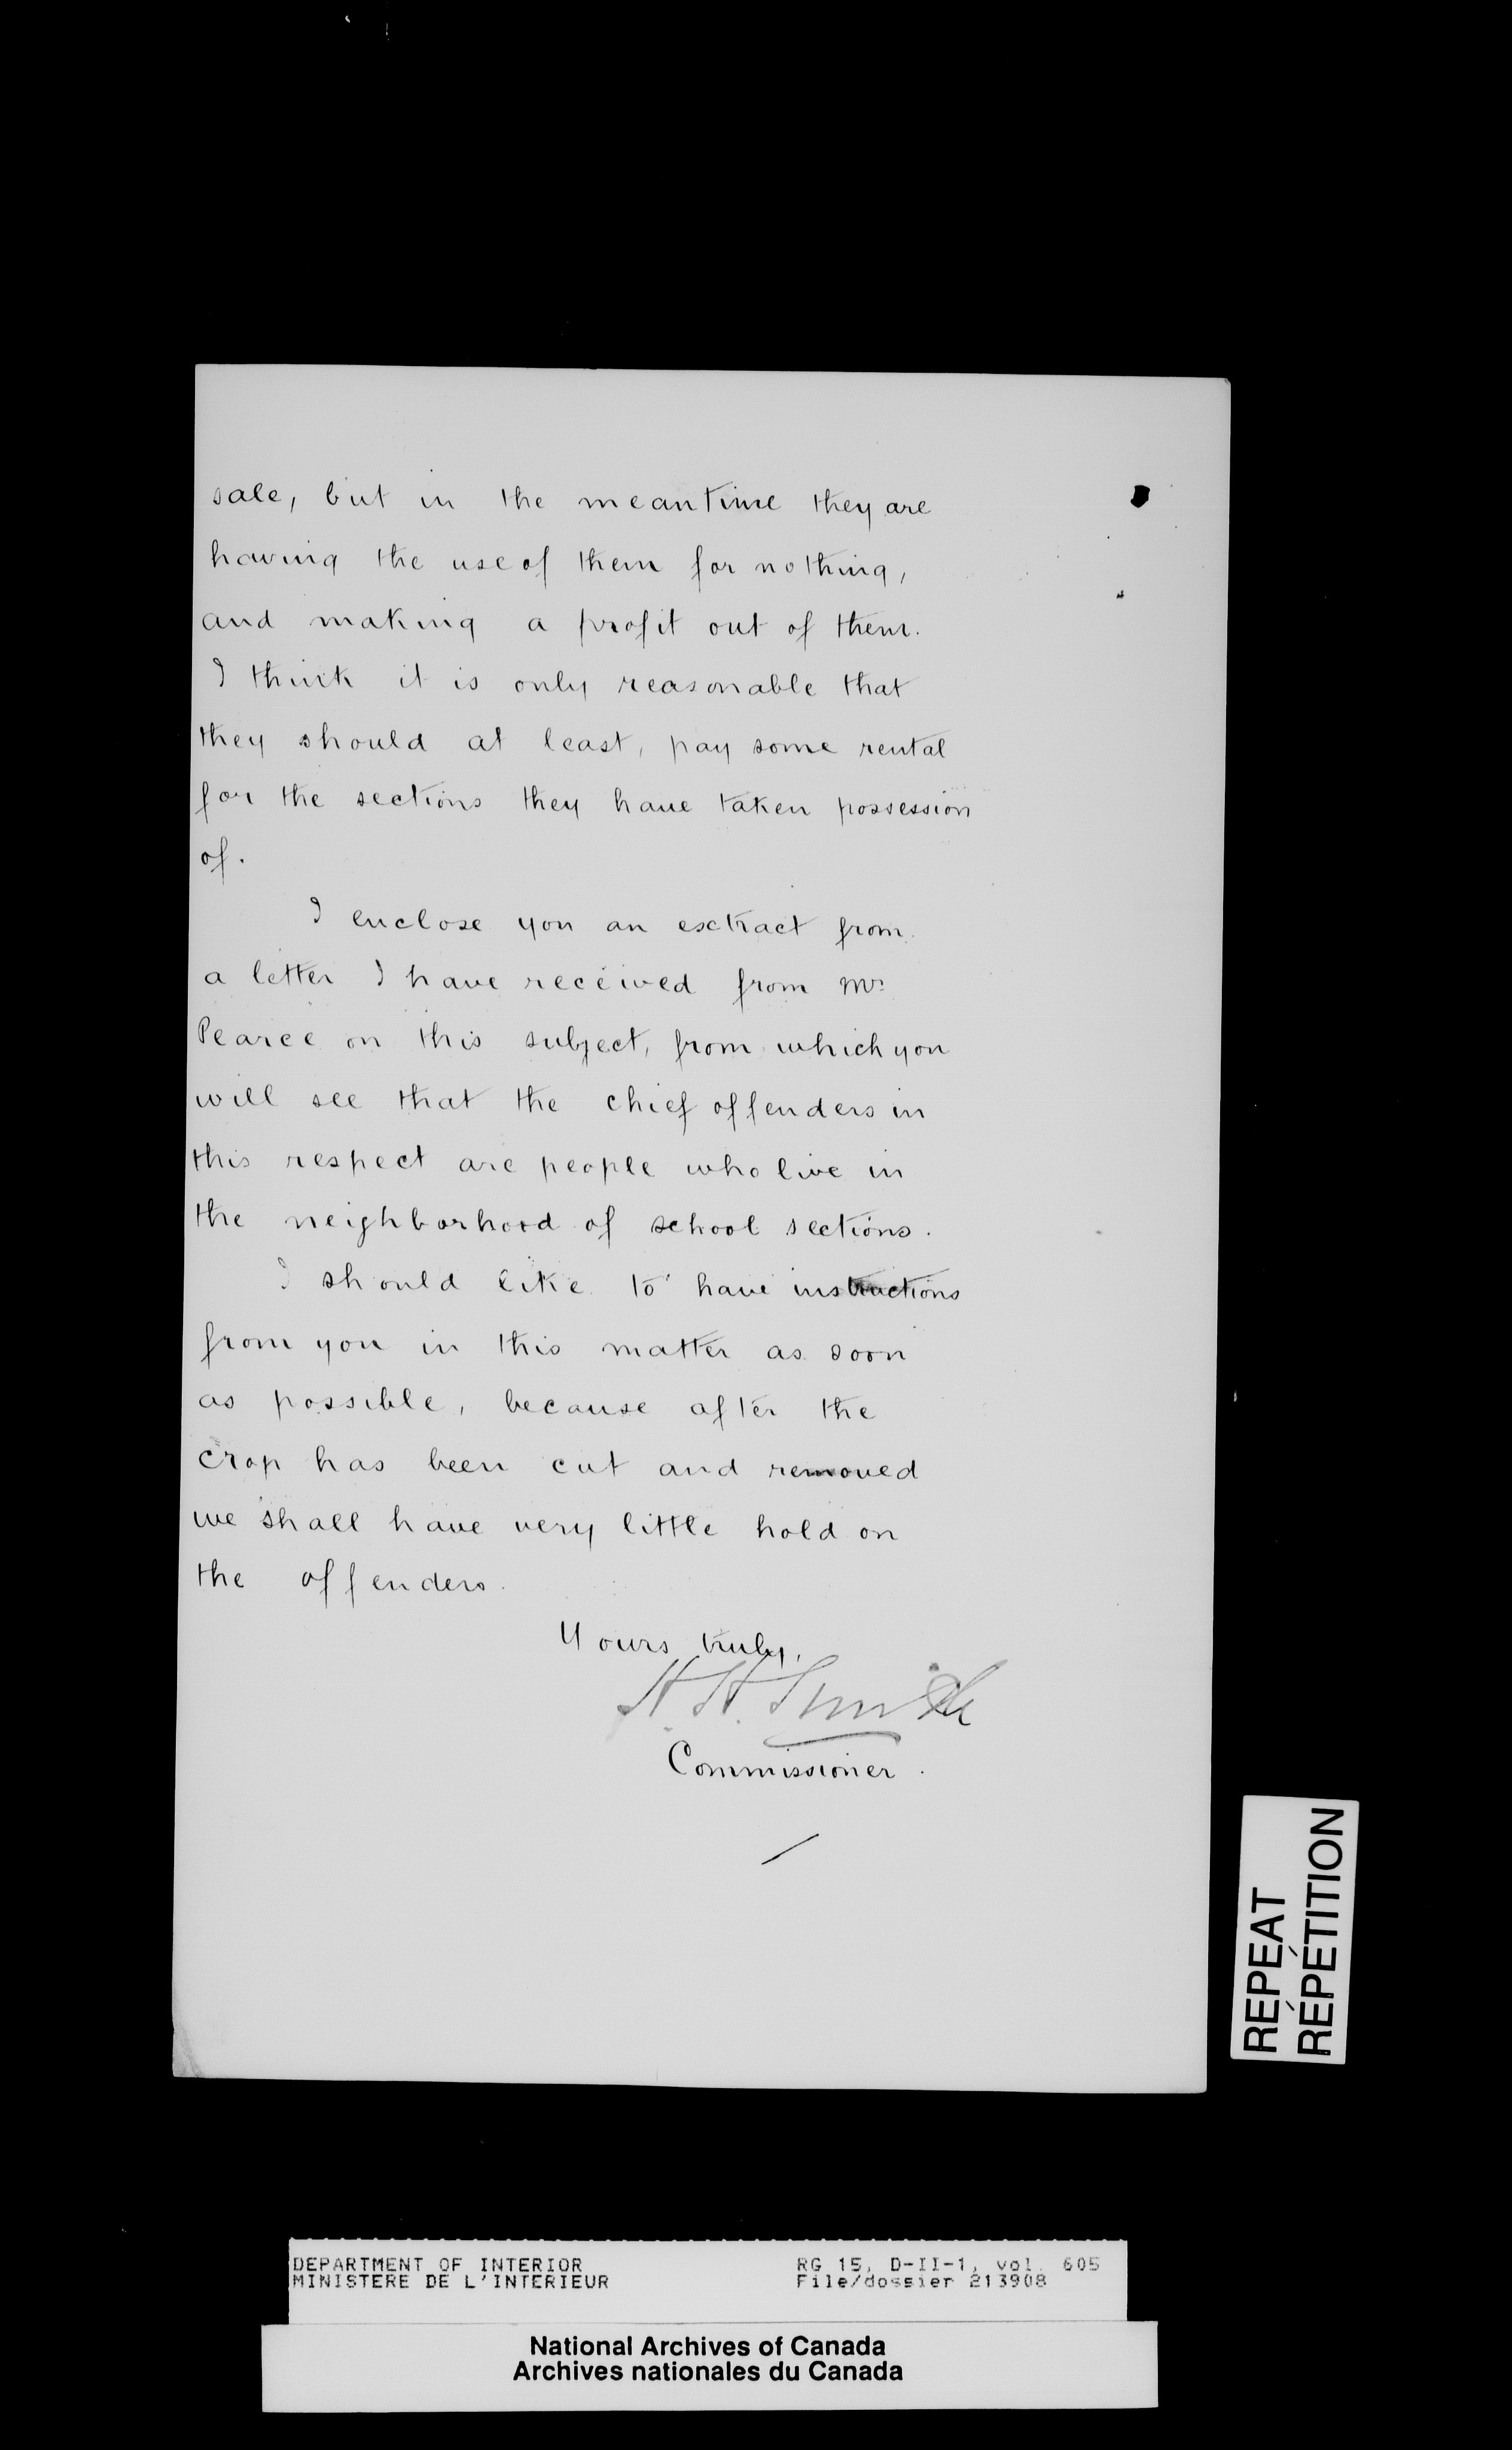 sale, but in the meantime they are
having the use of them for nothing,
and making a profit out of them.
I think it is only reasonable that
they should at least, pay some rental
for the sections they have taken possession
of.
I enclose you an extract from
a letter I have received from Mr
Pearce on this subject, from which you
will see that the chief offenders in
this respect are people who live in
the neighborhood of school sections.
I should like to have instructions
from you in this matter as soon
as possible, because after the
crop has been cut and removed
we shall have very little hold on
the offenders.
Yours truly,
H. H. Smith
Commissioner.
REPEAT
RÉPÉTITION
DEPARTMENT OF INTERIOR RG 15, D-II-1, vol. 605
MINISTERE DE L'INTERIEUR File/dossier 213908
National Archives of Canada
Archives nationales du Canada